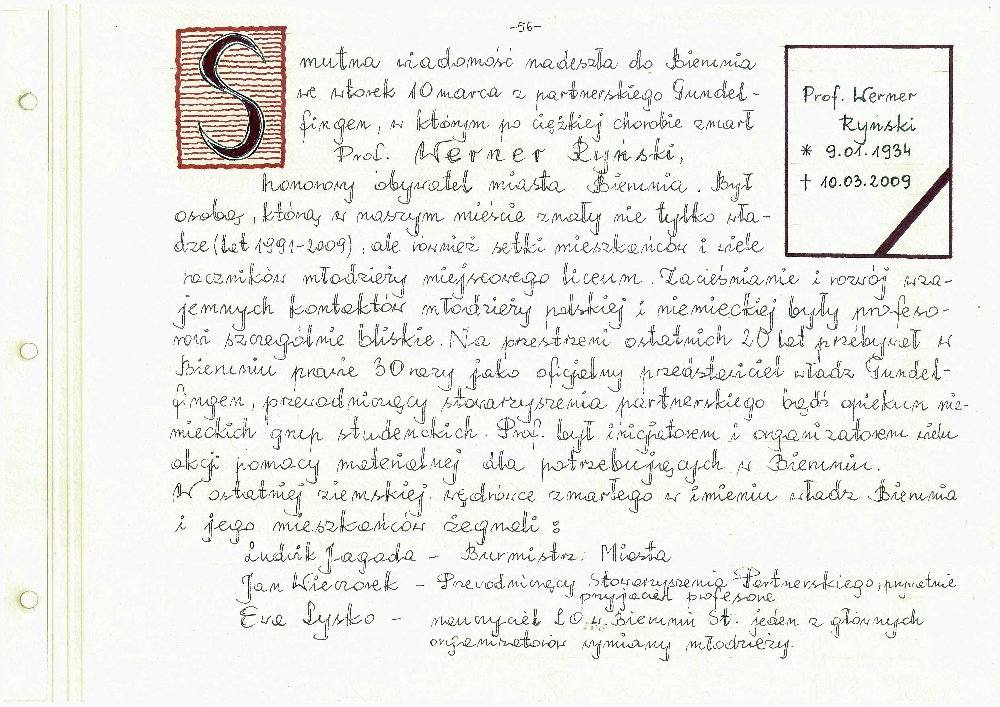 -56-
Smutna wiadomość nadeszła do Bierunia
we wtorek 10 marca z partnerskiego Gundel-
fingen, w którym po ciężkiej chorobie zmarł
Prof. Werner Ryński,
honorowy obywatel miasta Bierunia. Był
osobą, którą w naszym mieście znały nie tylko wła-
dze (lat 1991-2009), ale również setki mieszkańców i wiele
roczników młodzieży miejscowego liceum. Zacieśnianie i rozwój wza-
jemnych kontaktów młodzieży polskiej i niemieckiej były profeso-
rowi szczególnie bliskie. Na przestrzeni ostatnich 20 lat przebywał w
Bieruniu prawie 30 razy jako oficjalny przedstawiciel władz Gundel-
fingen, przewodniczący stowarzyszenia partnerskiego bądź opiekun nie-
mieckich grup studenckich. Prof. był inicjatorem i organizatorem wielu
akcji pomocy materialnej dla potrzebujących w Bieruniu.
W ostatniej ziemskiej wędrówce zmarłego w imieniu władz Bierunia
i jego mieszkańców żegnali :
Ludwik Jagoda - Burmistrz Miasta
Jan Wieczorek - Przewodniczący Stowarzyszenia Partnerskiego, prywatnie
przyjaciel profesora
Ewa Łysko - nauczyciel LO w Bieruniu St. jeden z głównych
organizatorów wymiany młodzieży.
Prof. Werner
Ryński
* 9.01.1934
† 10.03.2009